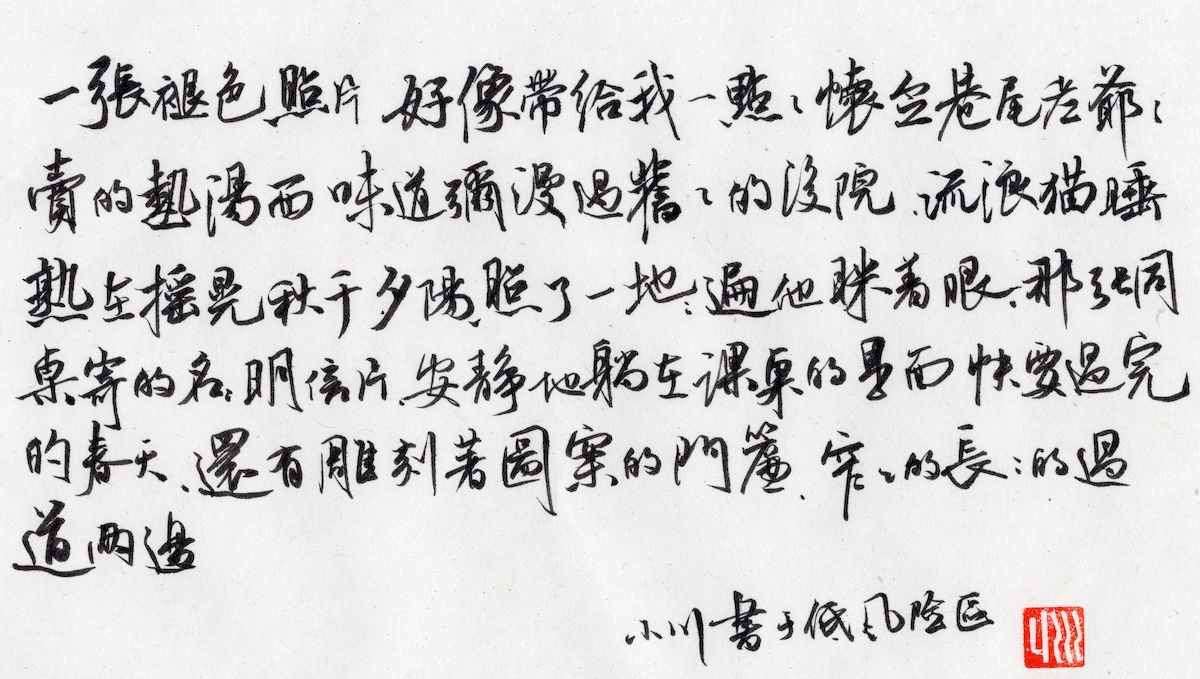 一張褪色照片 好像帶給我一點々懷念巷尾老爺々
賣的熱湯面 味道彌漫過舊々的後院 流浪猫睡
熟在摇晃秋千夕陽照了一地遍他眯着眼那张同
桌寄的名明信片安静地躺在課桌的里面 快要過完
的春天還有雕刻著圖案的門簾 窄々的長々的過
道兩邊
小川書于低风险区